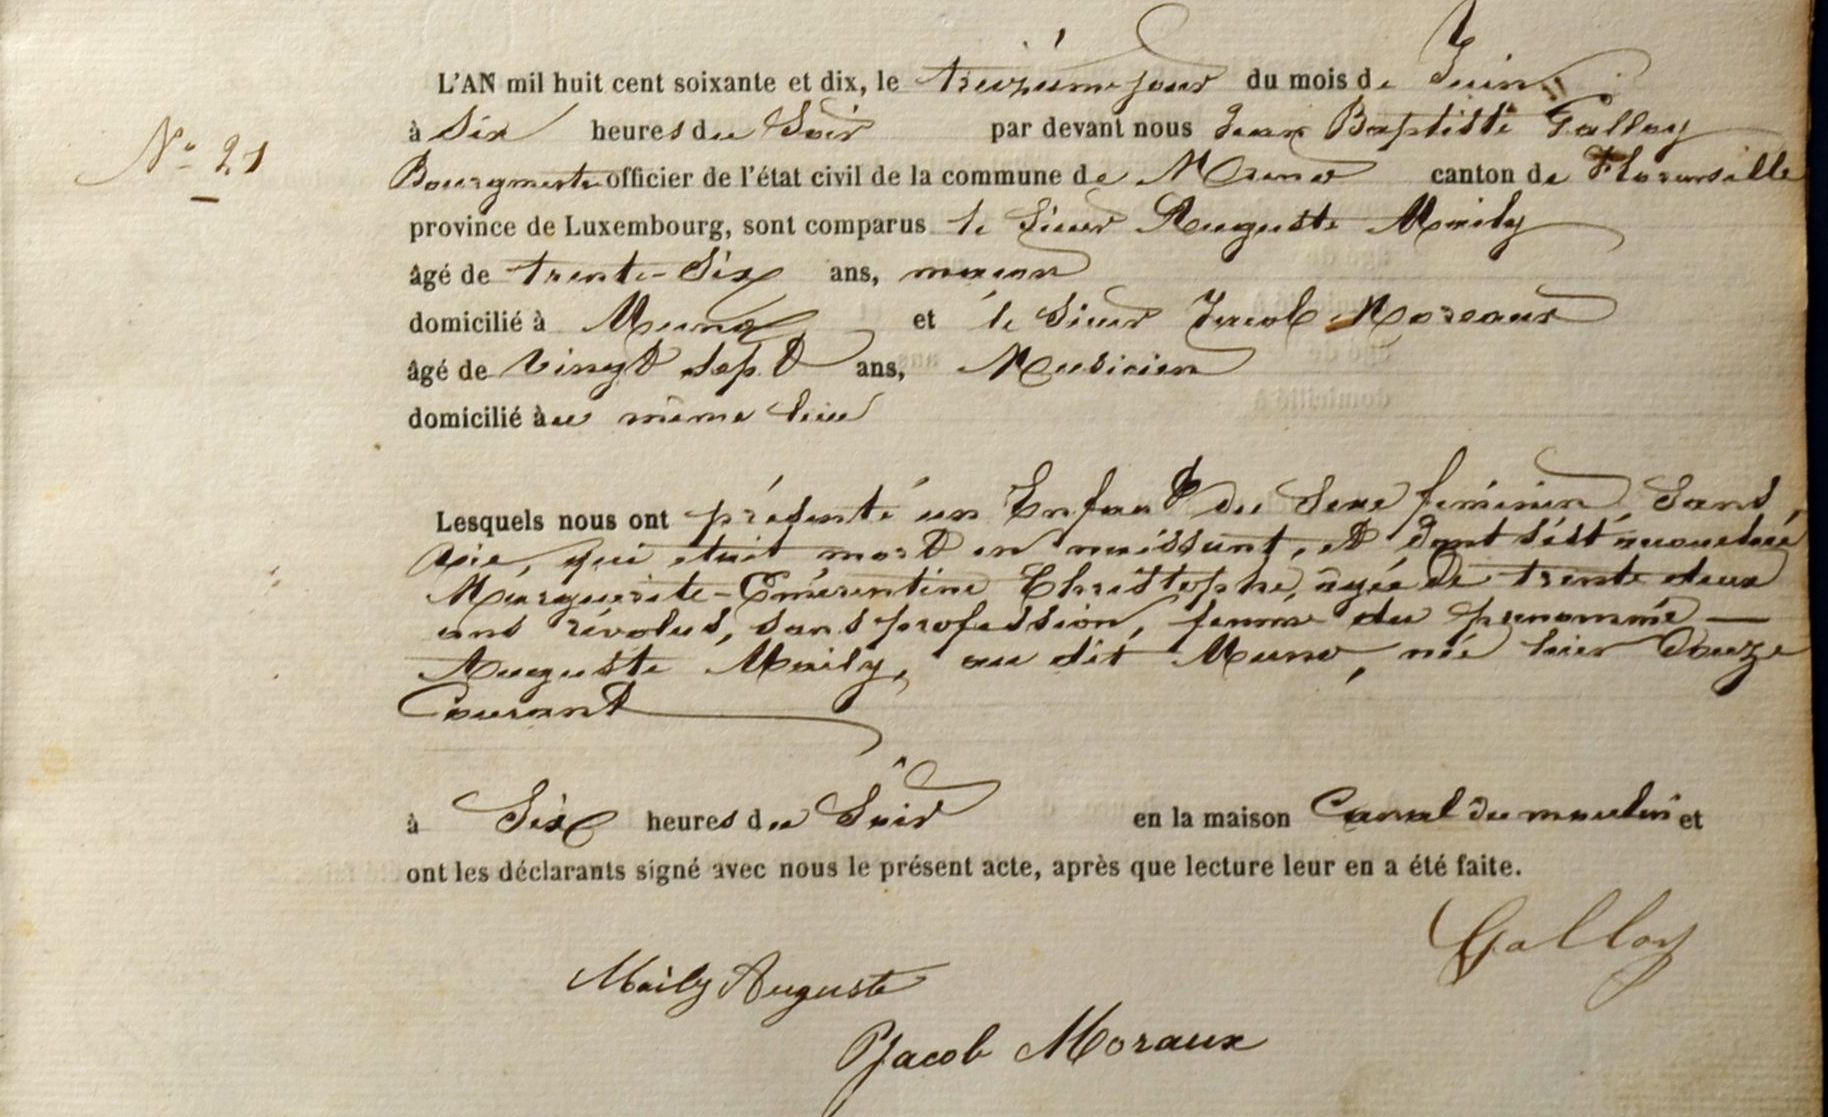 L'AN mil huit cent soixante et dix, le treizième jour du mois de Juin
à Six heures du Soir par devant nous Jean Baptiste Galloy
N° 21
Bourgmestre officier de l'état civil de la commune de Muno canton de Florenville
province de Luxembourg, sont comparus le Sieur Auguste Maily
âgé de trente-Six ans, maçon
domicilié à Muno et le Sieur Jacob Moreaux
âgé de vingt sept ans, Musicien
domicilié à au même lieu
Lesquels nous ont présenté un Enfant du Sexe féminin, Sans
vie, qui était mort en naissant, et dont s'est accouchée
Marguerite-Emérentine Christophe, agée de trente deux
ans révolus, sans profession, femme du prénommé —
Auguste Maily, au dit Muno, née hier Douze
Courant
à Six heures du Soir en la maison Canal du moulin et
ont les déclarants signé avec nous le présent acte, après que lecture leur en a été faite.
Galloy
Maily Auguste
Jacob Moraux